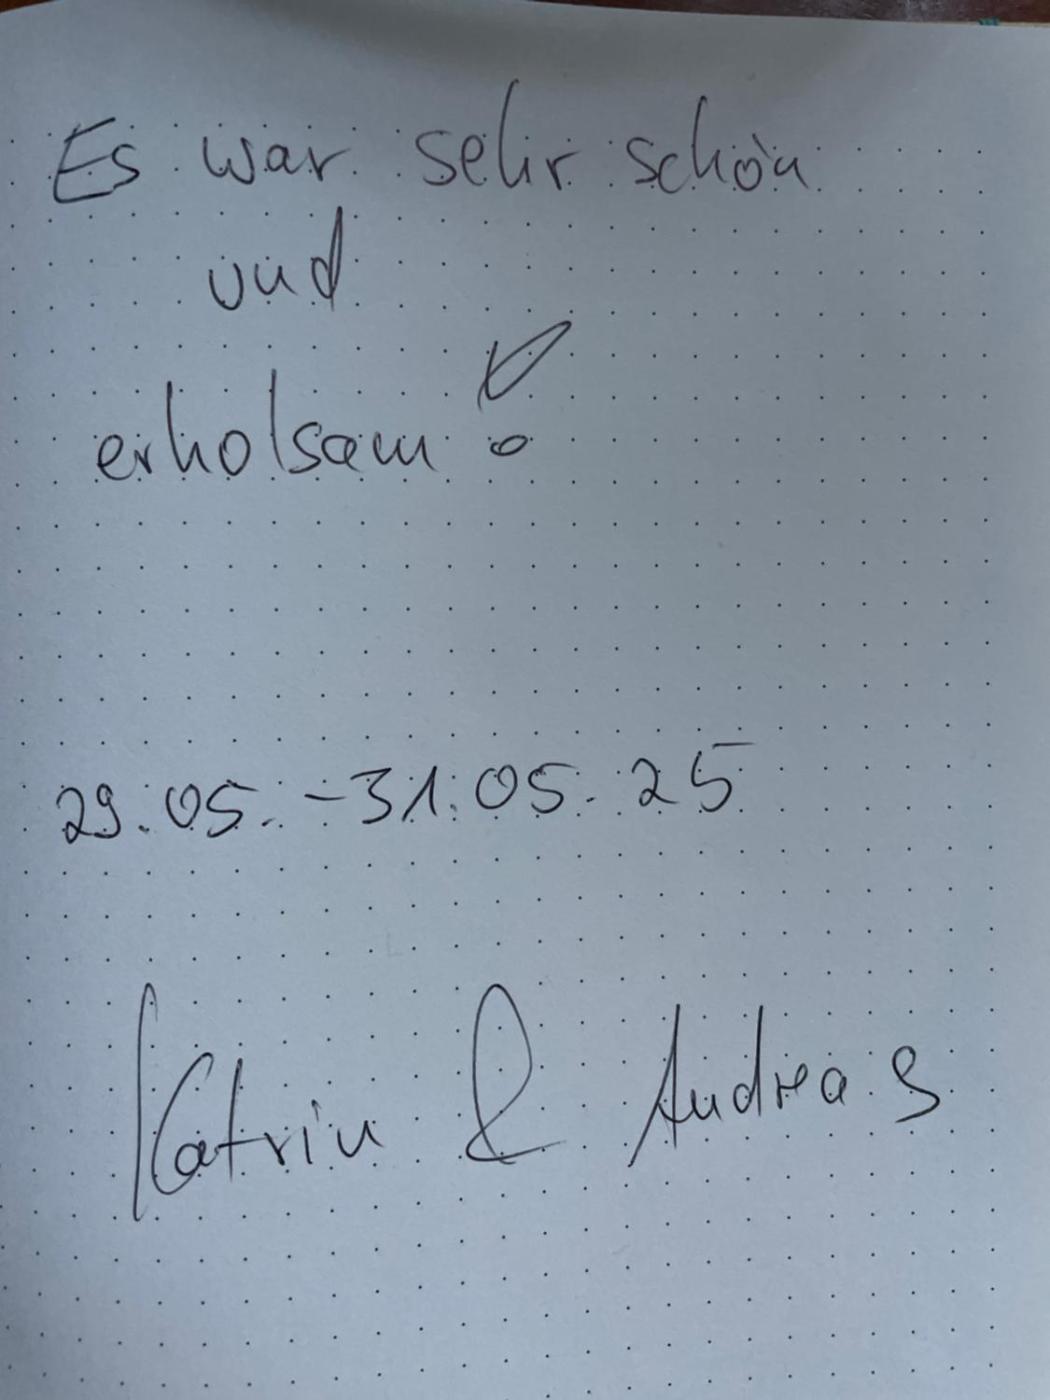 Es war sehr schön
und
erholsam!
29.05. - 31.05. 25
Katrin & Andreas